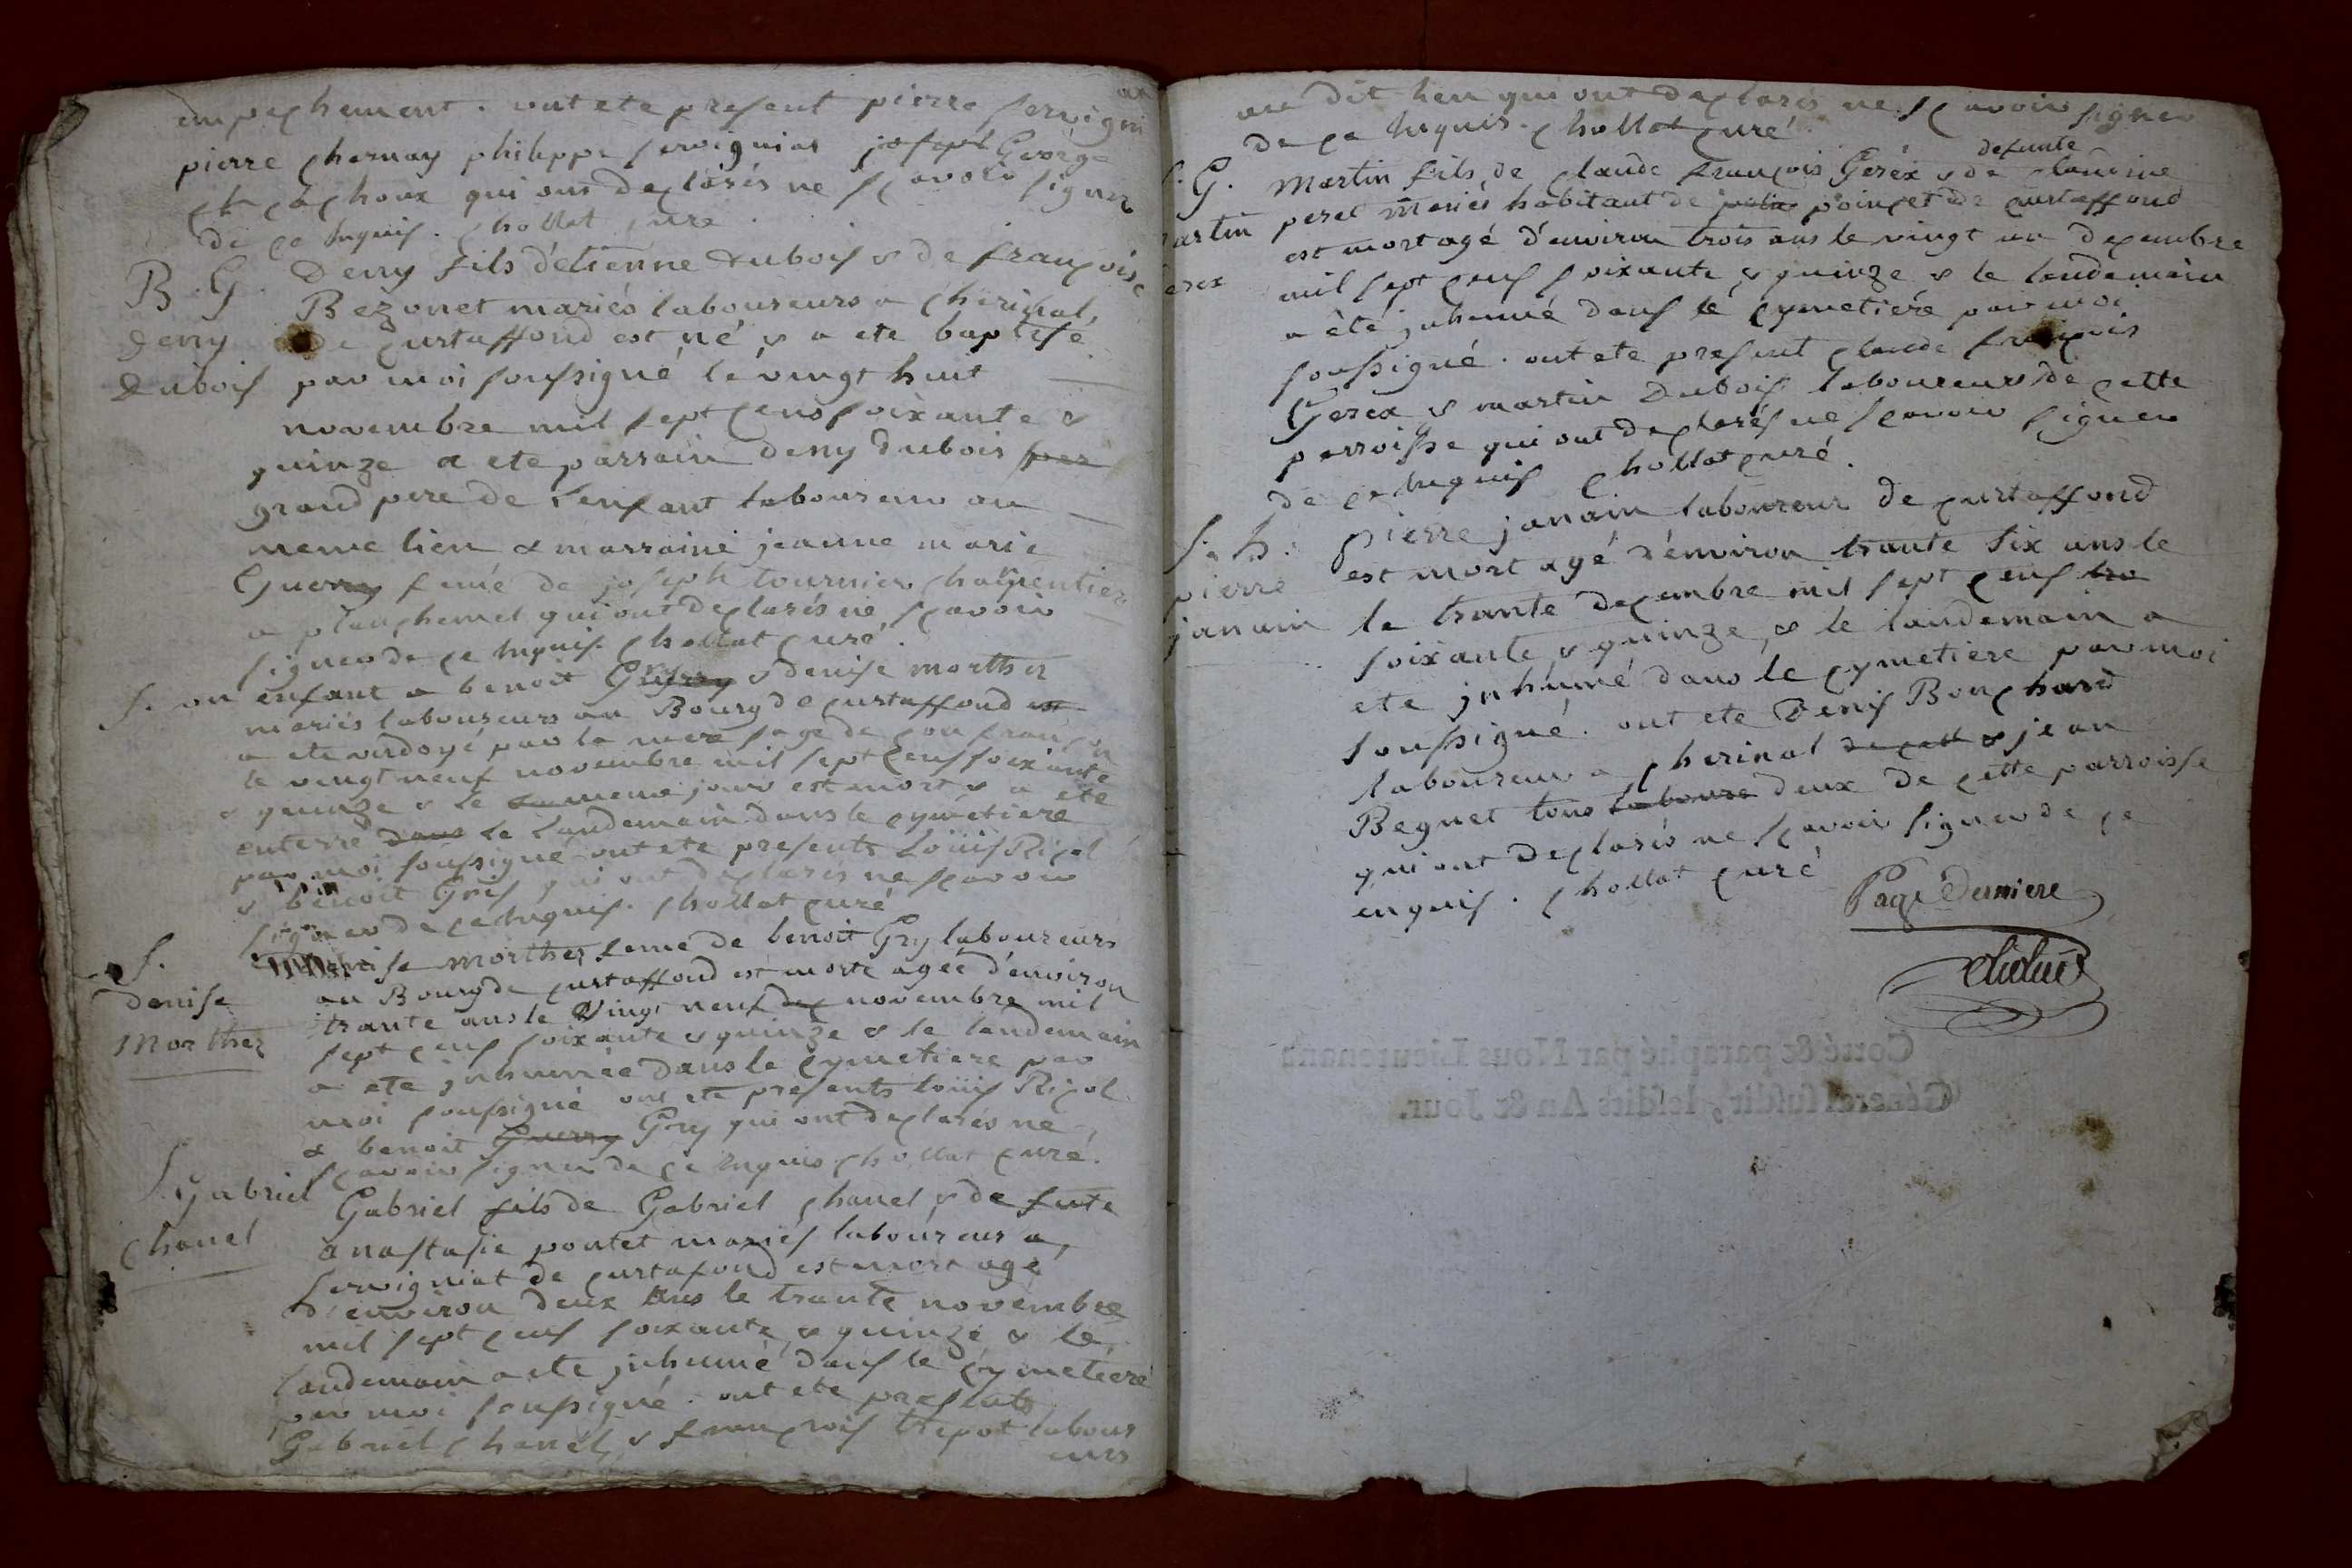 empechement. ont ete present pierre servigni at
pierre chernay philippe servigniat joseph George
et cachoux qui ont declarés ne scavoir signer
de ce Enquis. chollat curé.
B. G. Deny fils d'etienne dubois & de françoise
Bezonet mariés laboureurs a cherinal,
deny de curtaffond est né & a ete baptisé
dubois par moi soussigné le vingt huit
novembre mil sept cens soixante &
quinze a ete parrain deny dubois per
grand pere de l'enfant laboureur au
meme lieu & marraine jeanne marie
Guerry feme de joseph tournier charpentier
a planchemel qui ont declarés ne scavoir
signer de ce Enquis. chollat curé.
S. un enfant a benoit Gry & denise morther
mariés laboureurs au Bourg de curtaffond est
a ete ondoyé par la mere sage de confrançon
le vingt neuf novembre mil sept cens soixante
& quinze & le meme jour est mort & a été
enterré dans le landemain dans le cymetiere
par moi soussigné ont ete presents Louis Rigol
& benoit Gris qui ont declarés ne scavoir
signer de ce Enquis. chollat curé
S. denise morther feme de benoit Gry laboureurs
denise au Bourg de curtaffond est morte agée d'environ
morther trante ans le Vingt neuf dec novembre mil
sept cens soixante & quinze & le landemain
a ete jnhumée dans le cymetiere par
moi soussigné ont ete presents louis Rigol
& benoit Guerry Gry qui ont declarés ne
scavoir signer de ce Enquis chollat curé.
S. gabriel Gabriel fils de Gabriel chanel & de fute
chanel anastasie pontet mariés laboureur a,
servigniat de curtafond est mort agé
d'environ deux ans le trante novembre
mil sept cens soixante & quinze & le
landemain a ete jnhumé dans le cymetiere
par moi soussigné. ont ete presents
Gabriel chanel & françois trepot labour
eurs
au dit lieu qui ont declarés ne scavoir signer
de ce Enquis. chollat curé.
S. G. Martin fils de claude françois Gerex & de defunte claudine
martin perel mariés habitant de poincet de curtaffond
est mort agé d'environ trois ans le vingt un decembre
Gerex mil sept cens soixante & quinze & le landemain
a été jnhumé dans le cymetiere par moi
soussigné. ont ete present claude françois
Gerex & martin Dubois laboureurs de cette
parroisse qui ont declarés ne scavoir signer
de ce Enquis chollat curé.
S. h. pierre janain laboureur de curtaffond
pierre est mort agé d'environ trante six ans le
janain le trante decembre mil sept cens tra
soixante & quinze, & le landemain a
ete jnhumé dans le cymetiere par moi
soussigné. ont ete Denis Bonchard
laboureur a cherinal de cette & jean
Beguet tous laboure deux de cette parroisse
qui ont declarés ne scavoir signer de ce
enquis. chollat curé
Page Derniere
Cotté & paraphé par Nous Lieutenant
Général susdit, lesdits An & Jour.